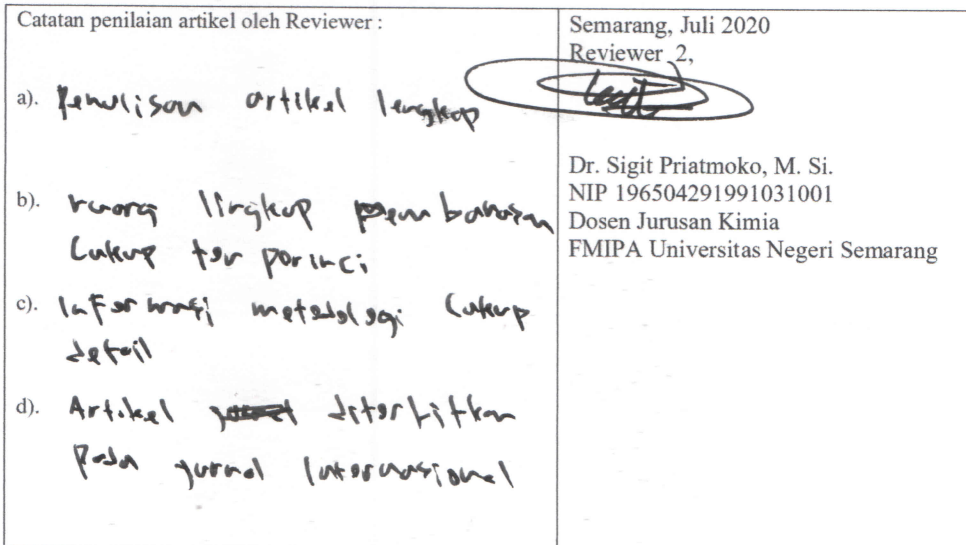 Catatan penilaian artikel oleh Reviewer :
a). Penulisan artikel lengkap
b). ruang lingkup pembahasan
Cukup ter perinci
c). Informasi metodologi Cukup
detail
d). Artikel diterbitkan
pada jurnal Internasional
Semarang, Juli 2020
Reviewer 2,
Dr. Sigit Priatmoko, M. Si.
NIP 196504291991031001
Dosen Jurusan Kimia
FMIPA Universitas Negeri Semarang